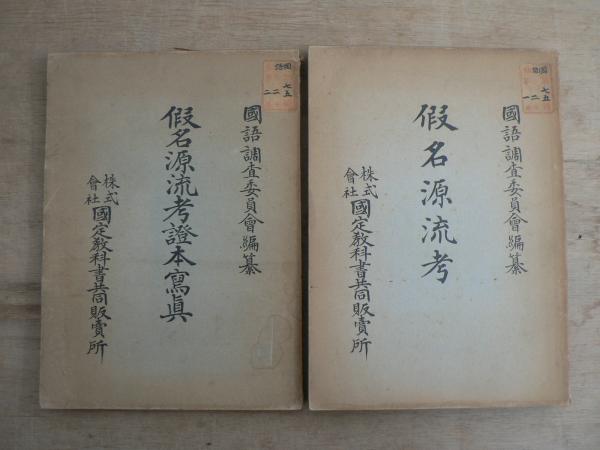 國語調査委員會編纂
假名源流考
株式
會社
國定敎科書共同販賣所
國語調査委員會編纂
假名源流考證本寫眞
株式
會社
國定敎科書共同販賣所